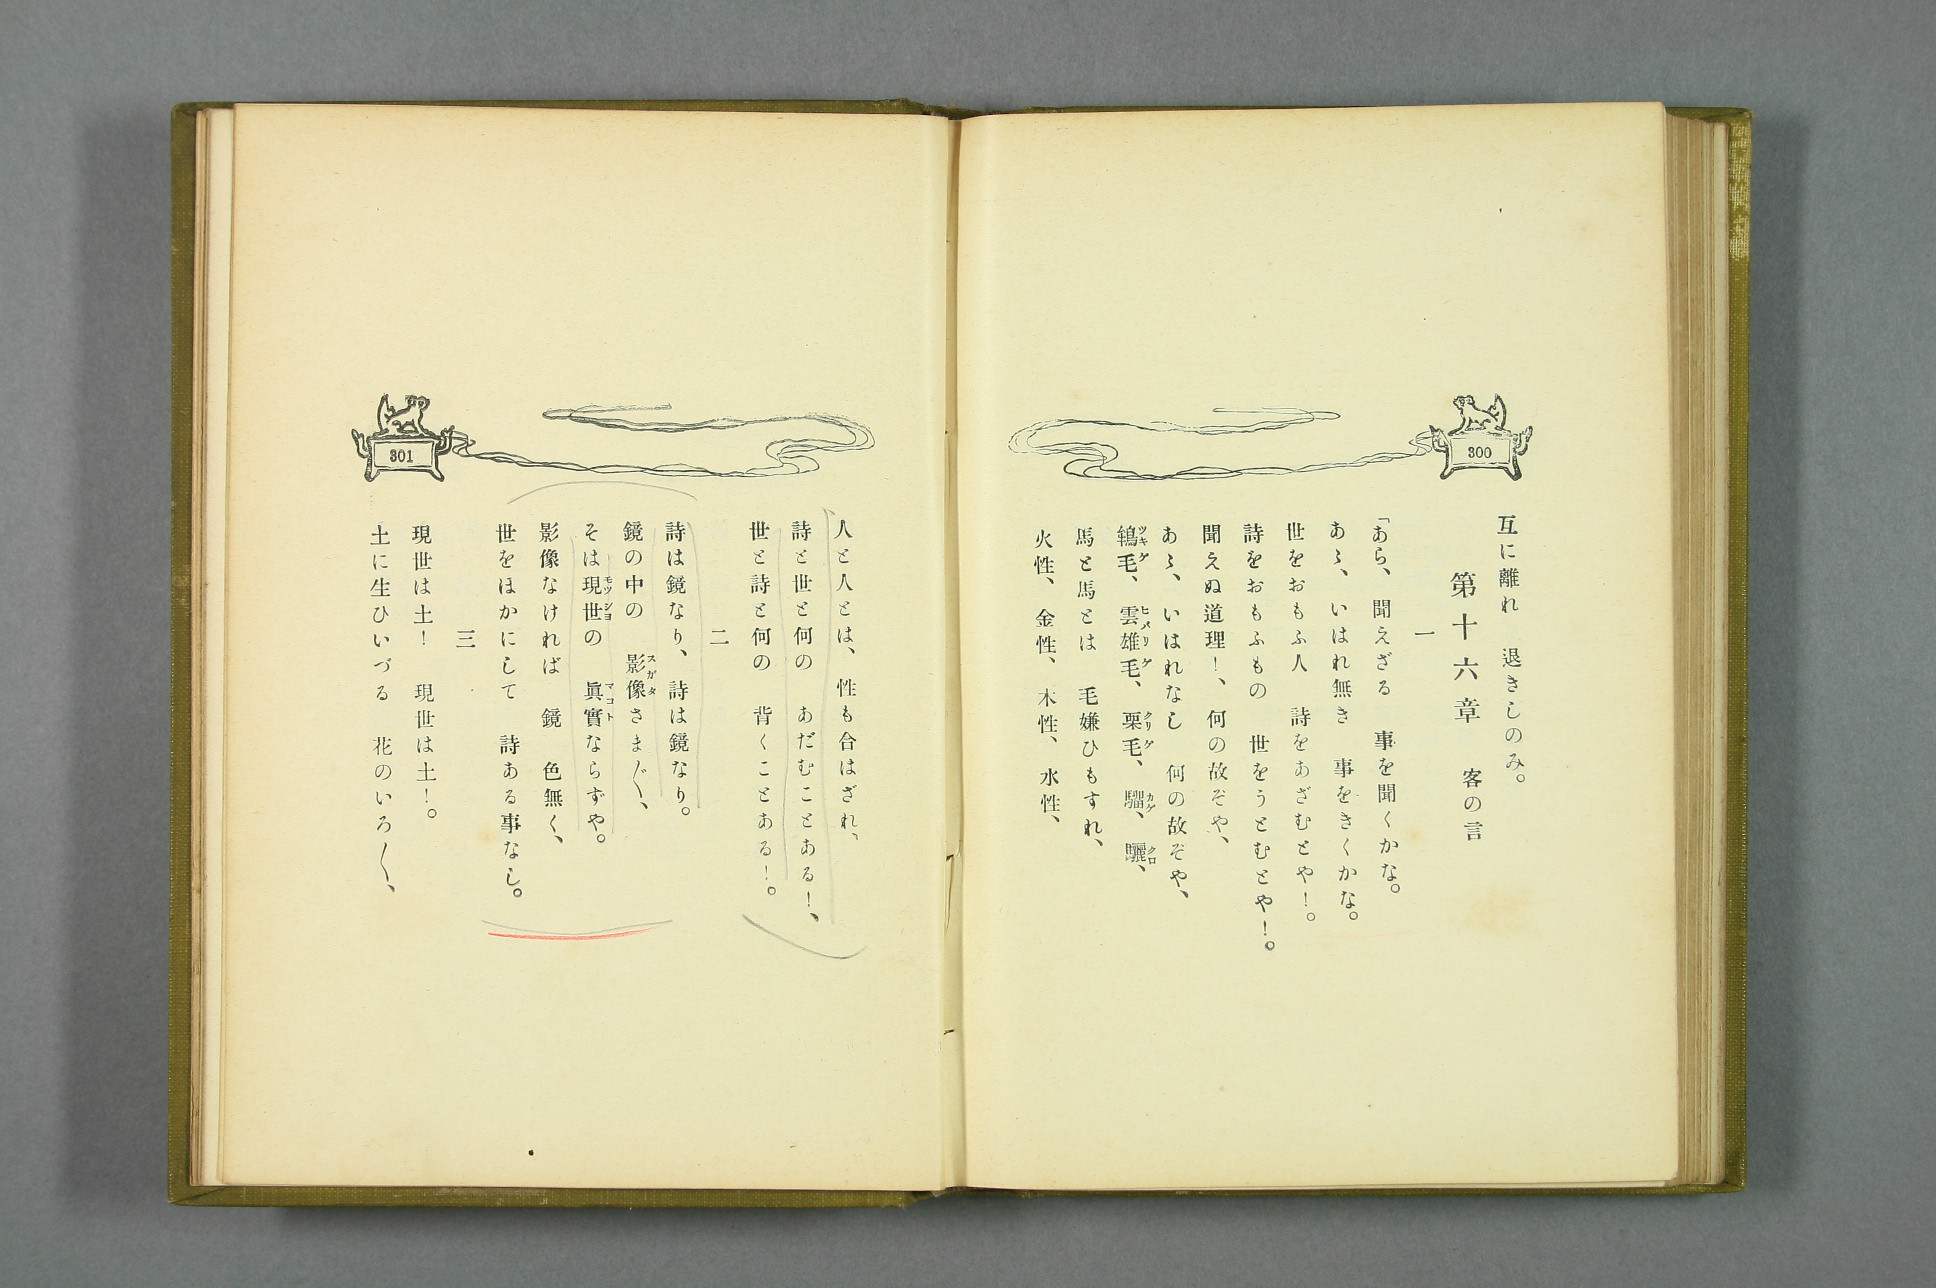 300
互に離れ　退きしのみ。
第十六章　客の言
一
「あら、聞えざる　事を聞くかな。
あゝ、いはれ無き　事をきくかな。
世をおもふ人　詩をあざむとや！。
詩をおもふもの　世をうとむとや！。
聞えぬ道理！、何の故ぞや、
あゝ、いはれなし　何の故ぞや、
鴾毛、雲雄毛、栗毛、騮、驪、
ツキゲ　ヒメリゲ　クリゲ　カゲ　クロ
馬と馬とは　毛嫌ひもすれ、
火性、金性、木性、水性、
301
人と人とは、性も合はざれ、
詩と世と何の　あだむことある！、
世と詩と何の　背くことある！。
二
詩は鏡なり、詩は鏡なり。
鏡の中の　影像さま〴〵、
スガタ
そは現世の　眞實ならずや。
モツシヨ　マコト
影像なければ　鏡　色無く、
世をほかにして　詩ある事なし。
三
現世は土！　現世は土！。
土に生ひいづる　花のいろ〳〵、